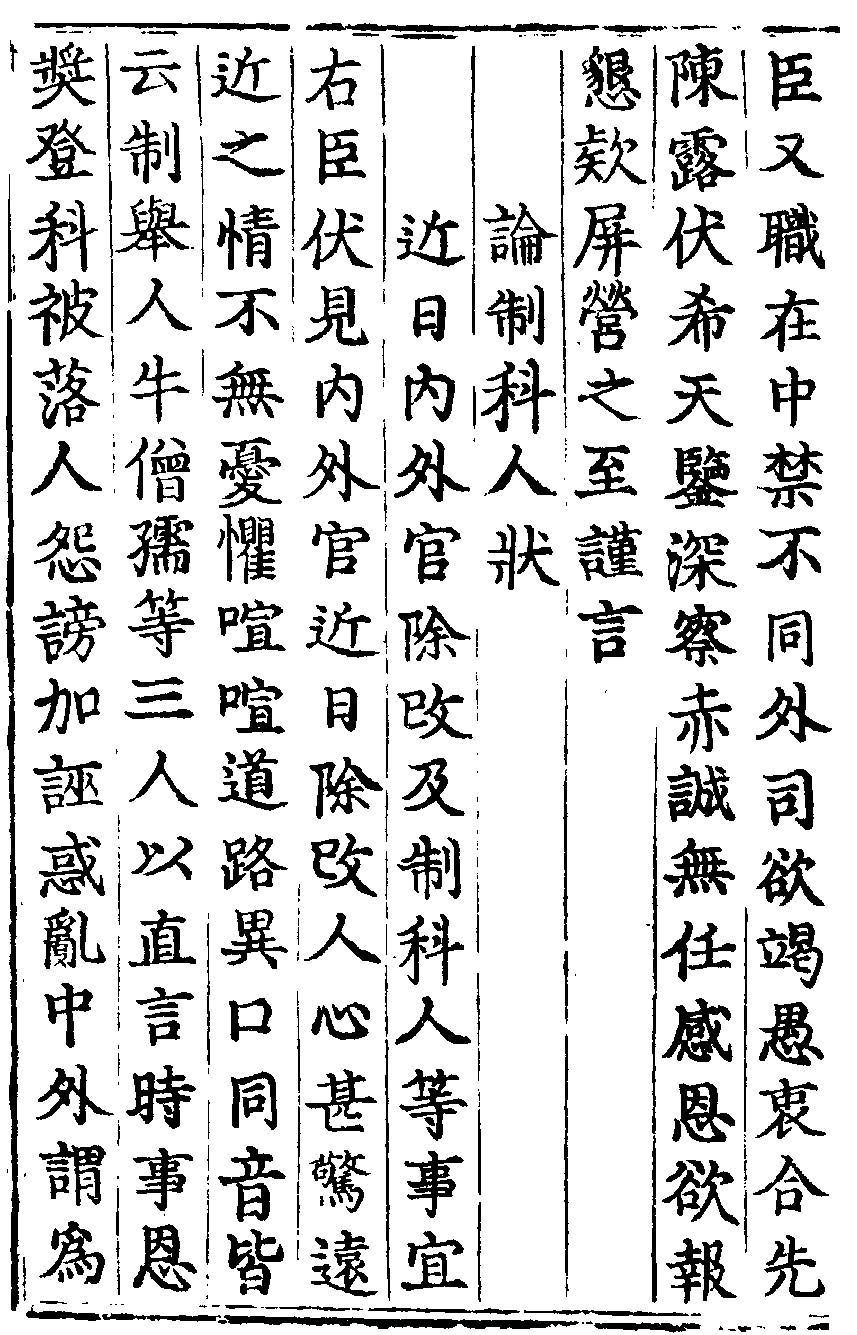 臣又職在中禁不同外司欲竭愚衷合先
陳露伏希天鑒深察赤誠無任感恩欲報
懇欵屏營之至謹言
論制科人狀
近日內外官除改及制科人等事宜
右臣伏見內外官近日除改人心甚驚遠
近之情不無憂懼喧喧道路異口同音皆
云制舉人牛僧孺等三人以直言時事恩
奬登科被落人怨謗加誣惑亂中外謂爲